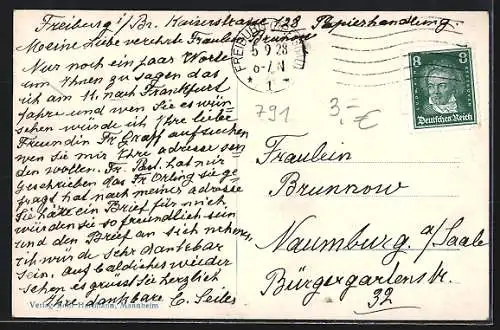 Freiburg i/Br. Kaiserstrasse 128 Papierhandlung.
Meine Liebe verehrte Fraulein Brunnow
Nur noch ein paar Worte
um Ihnen zu sagen das
ich am 11. nach Frankfurt
fahre und wen Sie es wün=
schen würde ich Ihre liebe
Freundin Fr Graff aufsuchen
wen Sie mir Ihre adresse sen
den wollen. Fr. Past. hat mir
geschrieben das Fr Orling sie ge
fragt hat nach meiner adresse
Sie hätte ein Brief für mich.
würden sie so freundlich sein
und den Brief an sich nehmen
ich wür de sehr dankbar
sein. auf baldiches wieder
sehen es grüsst Sie herzlich
Ihre dankbare C. Seiler
Verlag Hartmann, Mannheim
FREIBURG
5 9 28
6-7 N
* 1
791
3,- €
8 8
Deutsches Reich
Fraulein
Brunnow
Naumburg a/Saale
Bürgergartenstr.
32